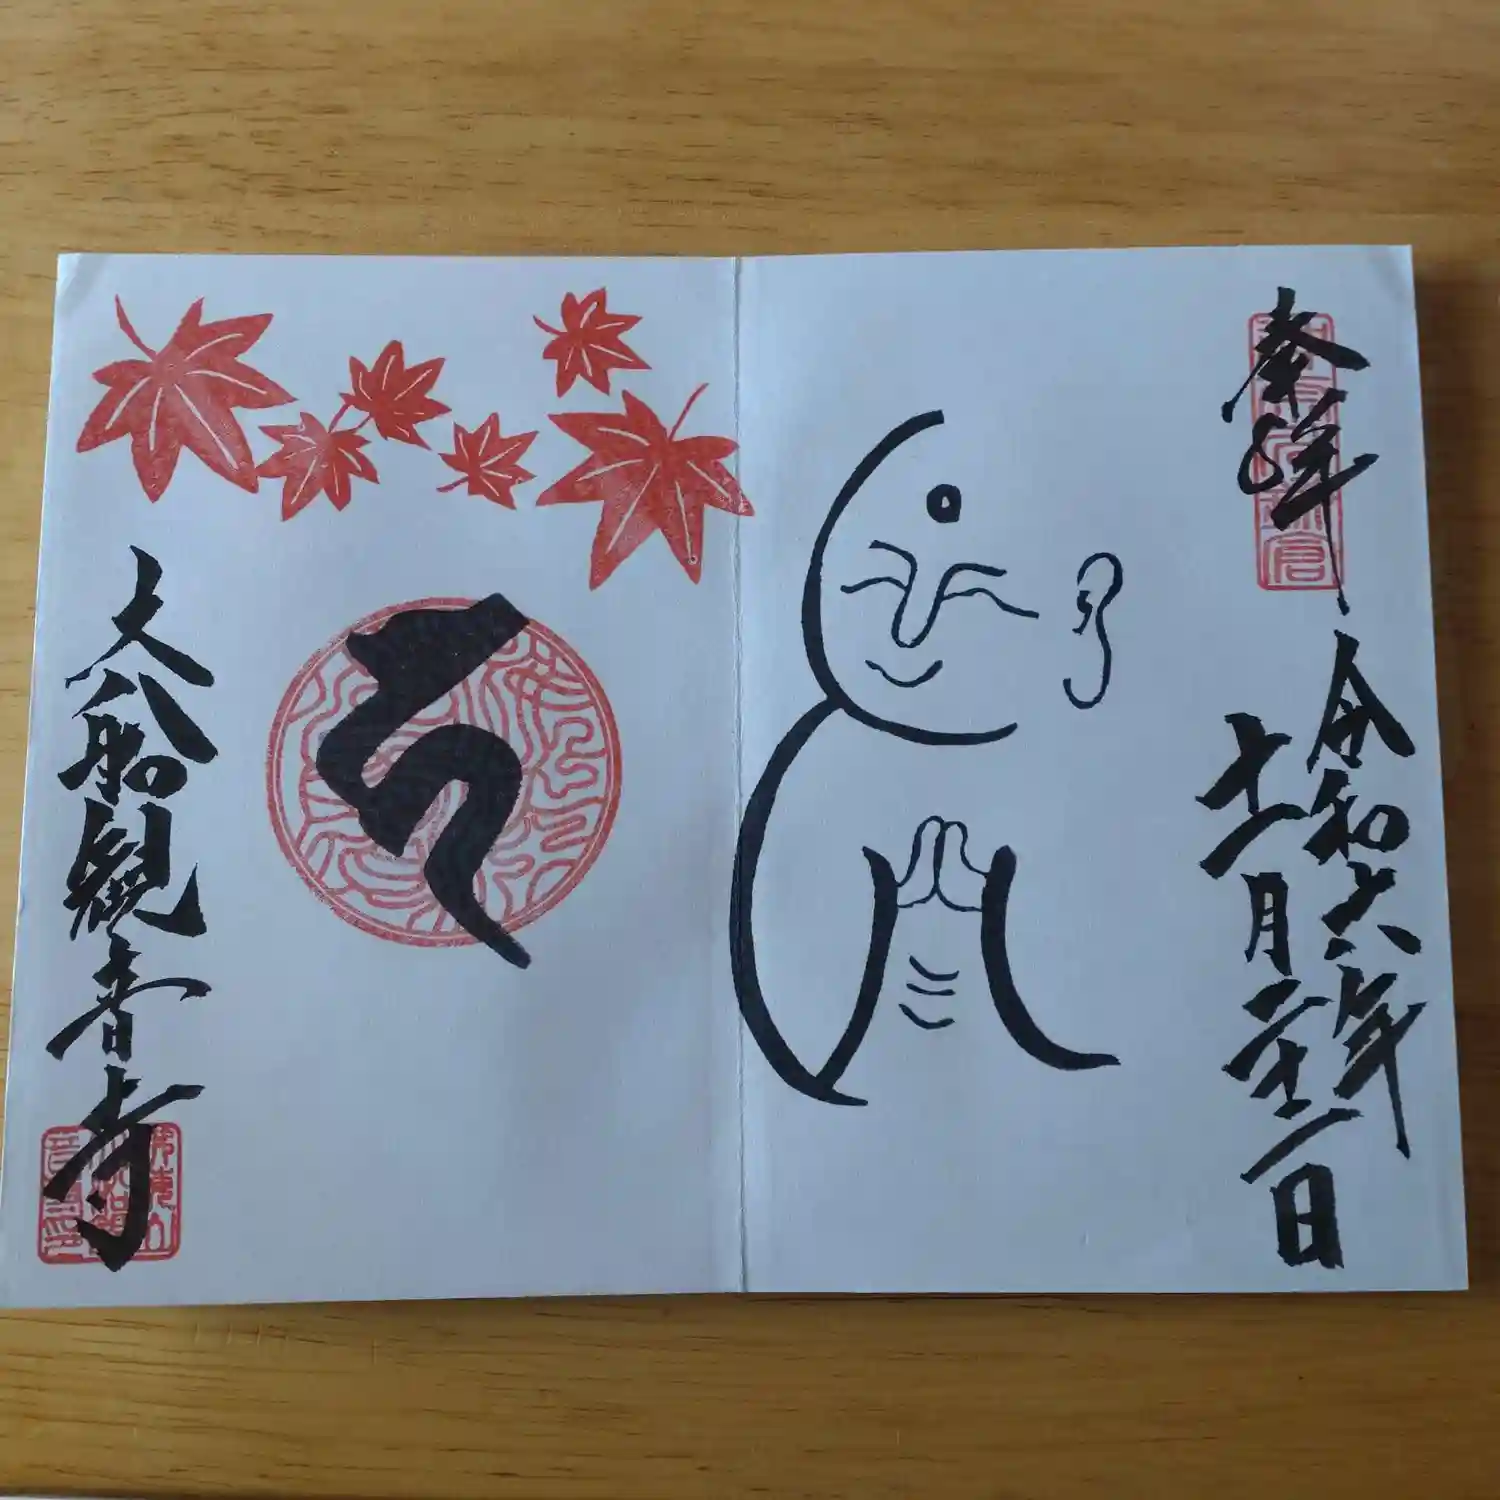 奉拝
令和六年
十一月二十二日
大船観音寺